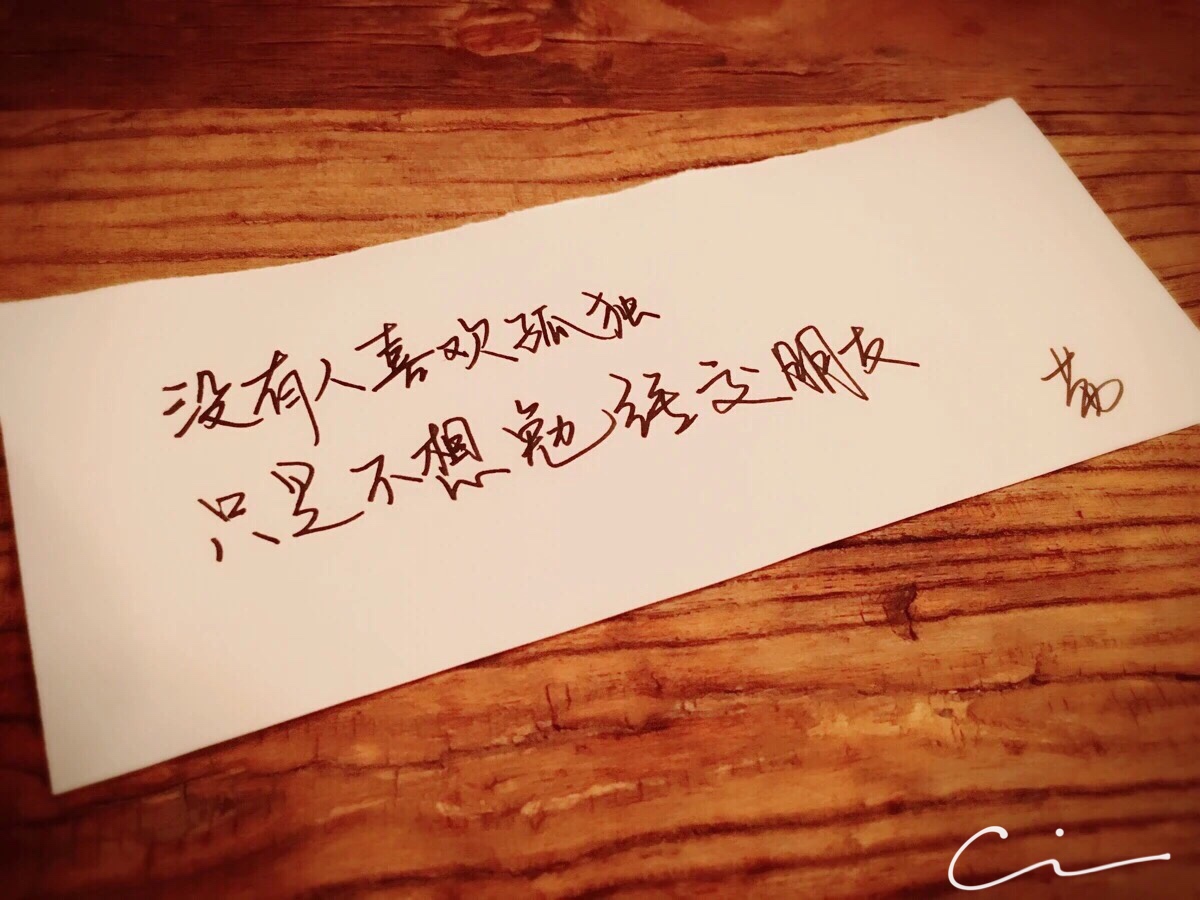 没有人喜欢孤独
只是不想勉强交朋友
Ci